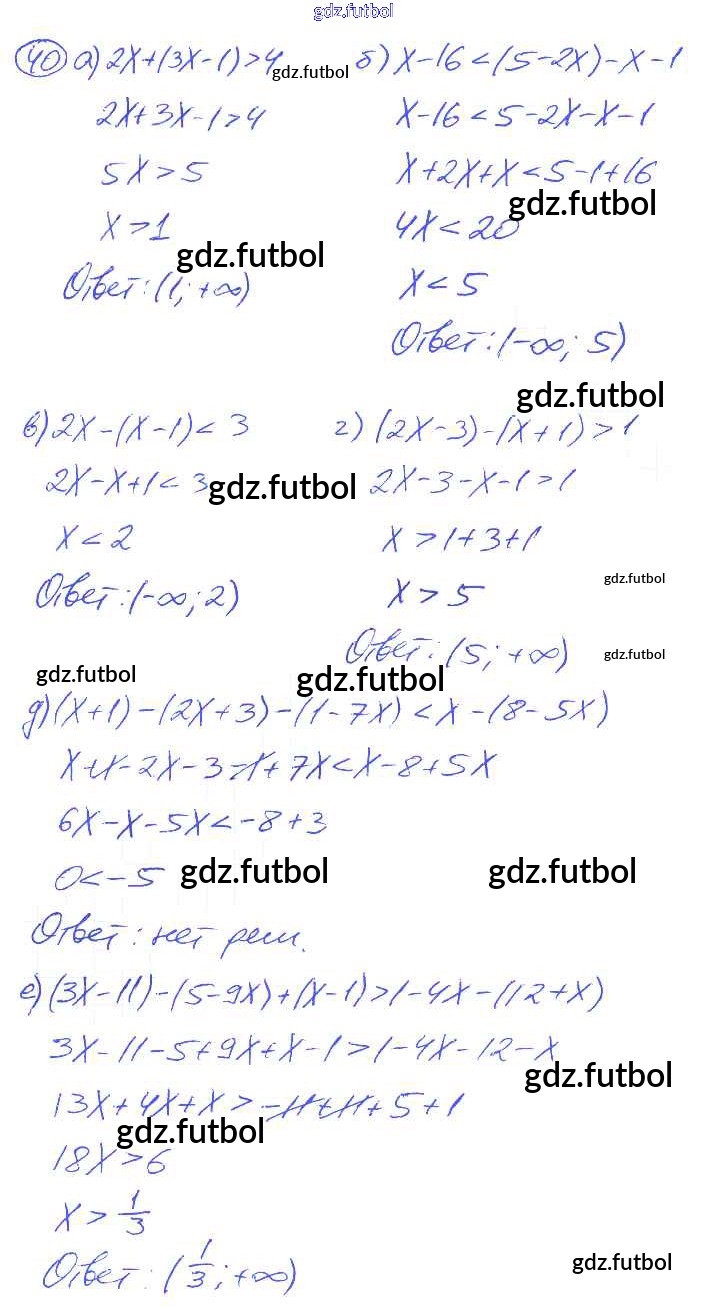 gdz.futbol
40 а) 2x+(3x-1)>4 gdz.futbol
2x+3x-1>4
5x>5
x>1
gdz.futbol
Ответ: (1; +∞)
б) x-16<(5-2x)-x-1
x-16<5-2x-x-1
x+2x+x<5-1+16
gdz.futbol
4x<20
x<5
Ответ: (-∞; 5)
gdz.futbol
в) 2x-(x-1)<3
2x-x+1<3 gdz.futbol
x<2
Ответ: (-∞; 2)
г) (2x-3)-(x+1)>1
2x-3-x-1>1
x>1+3+1
gdz.futbol
x>5
Ответ: (5; +∞)
gdz.futbol
gdz.futbol
gdz.futbol
д) (x+1)-(2x+3)-(1-7x)<x-(8-5x)
x+1-2x-3-1+7x<x-8+5x
6x-x-5x<-8+3
0<-5 gdz.futbol gdz.futbol
Ответ: нет реш.
е) (3x-11)-(5-9x)+(x-1)>1-4x-(12+x)
3x-11-5+9x+x-1>1-4x-12-x
gdz.futbol
13x+4x+x>-11+11+5+1
gdz.futbol
18x>6
x>1/3
Ответ: (1/3; +∞)
gdz.futbol